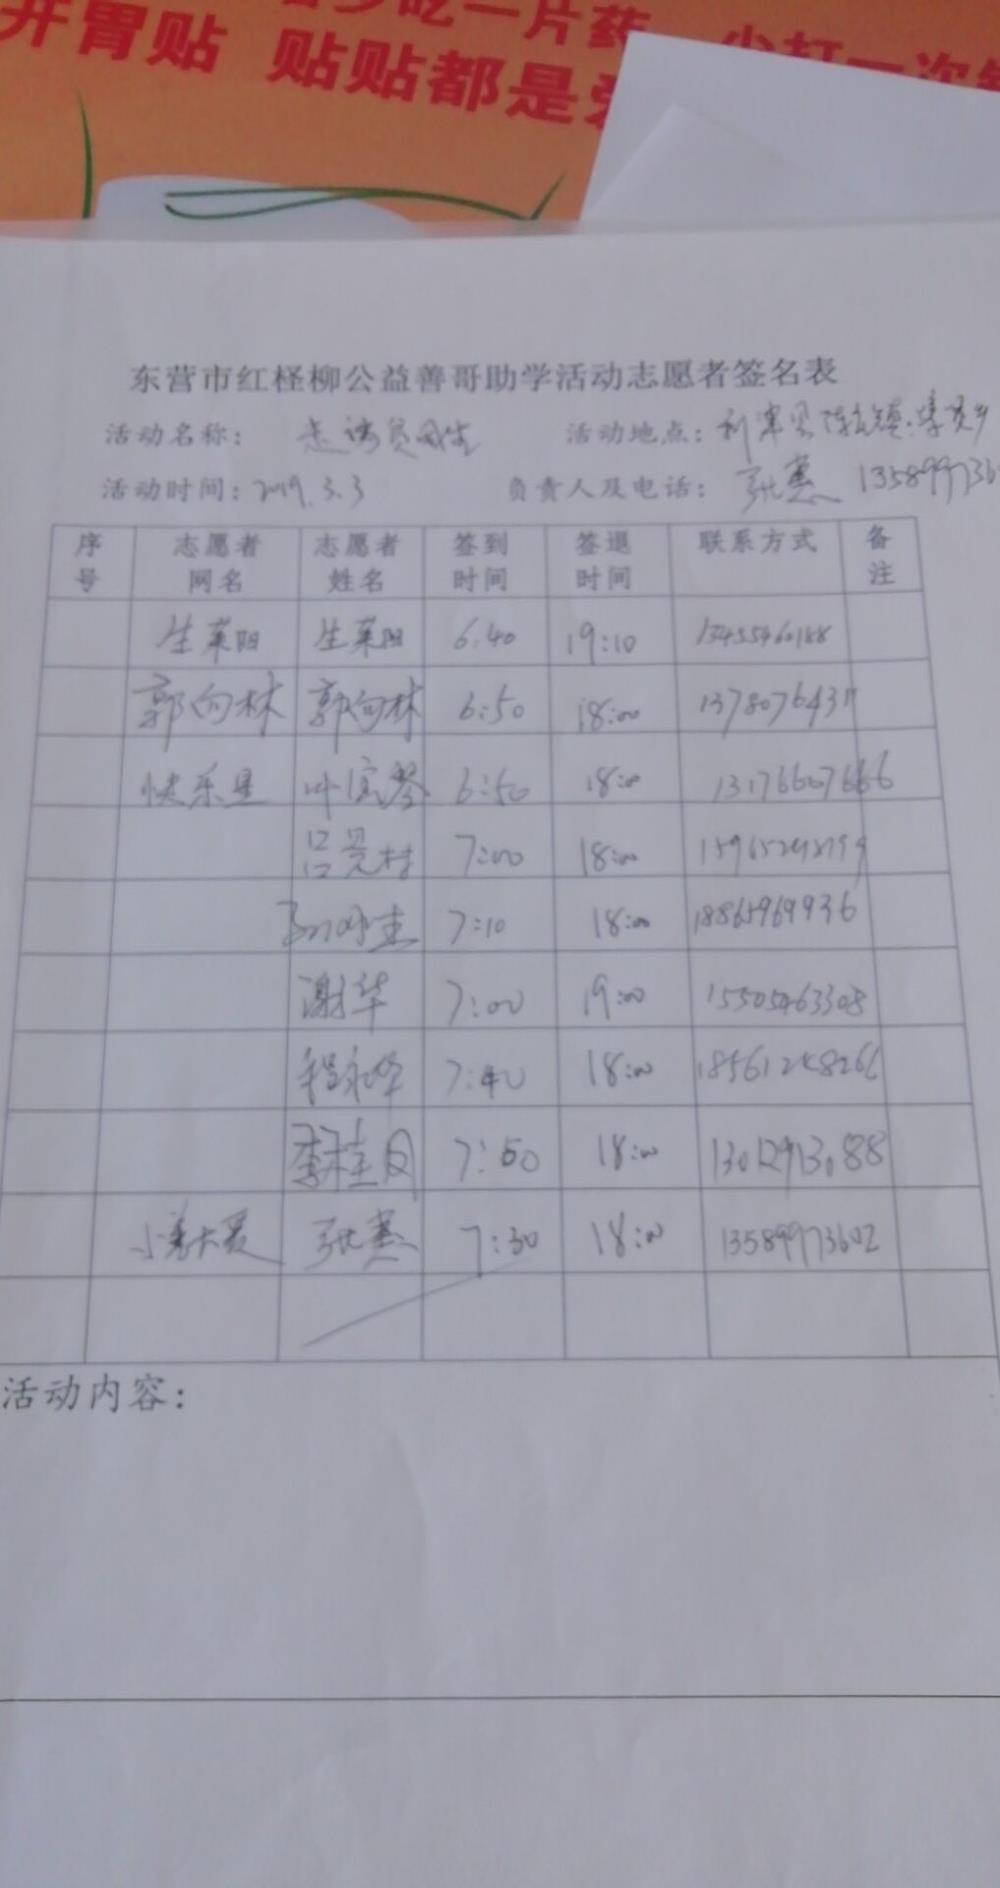 吃一片药 少打一次
开胃贴 贴贴都是
东营市红柽柳公益善哥助学活动志愿者签名表
活动名称: 走访贫困生 活动地点: 利津县陈庄镇
活动时间: 2019.3.3 负责人及电话: 张惠 135899736
序号 志愿者网名 志愿者姓名 签到时间 签退时间 联系方式 备注
生莱阳 生莱阳 6:40 19:10 13455460188
郭向林 郭向林 6:50 18:00 1378076431
快乐星 叶宾琴 6:50 18:00 13176607666
吕景村 7:00 18:00
7:10 18:00 18865969936
谢华 7:00 19:00 15505463308
程永峰 7:40 18:00 18561248266
李桂凤 7:50 18:00 13012913088
小善大爱 张惠 7:30 18:00 13589973602
活动内容: